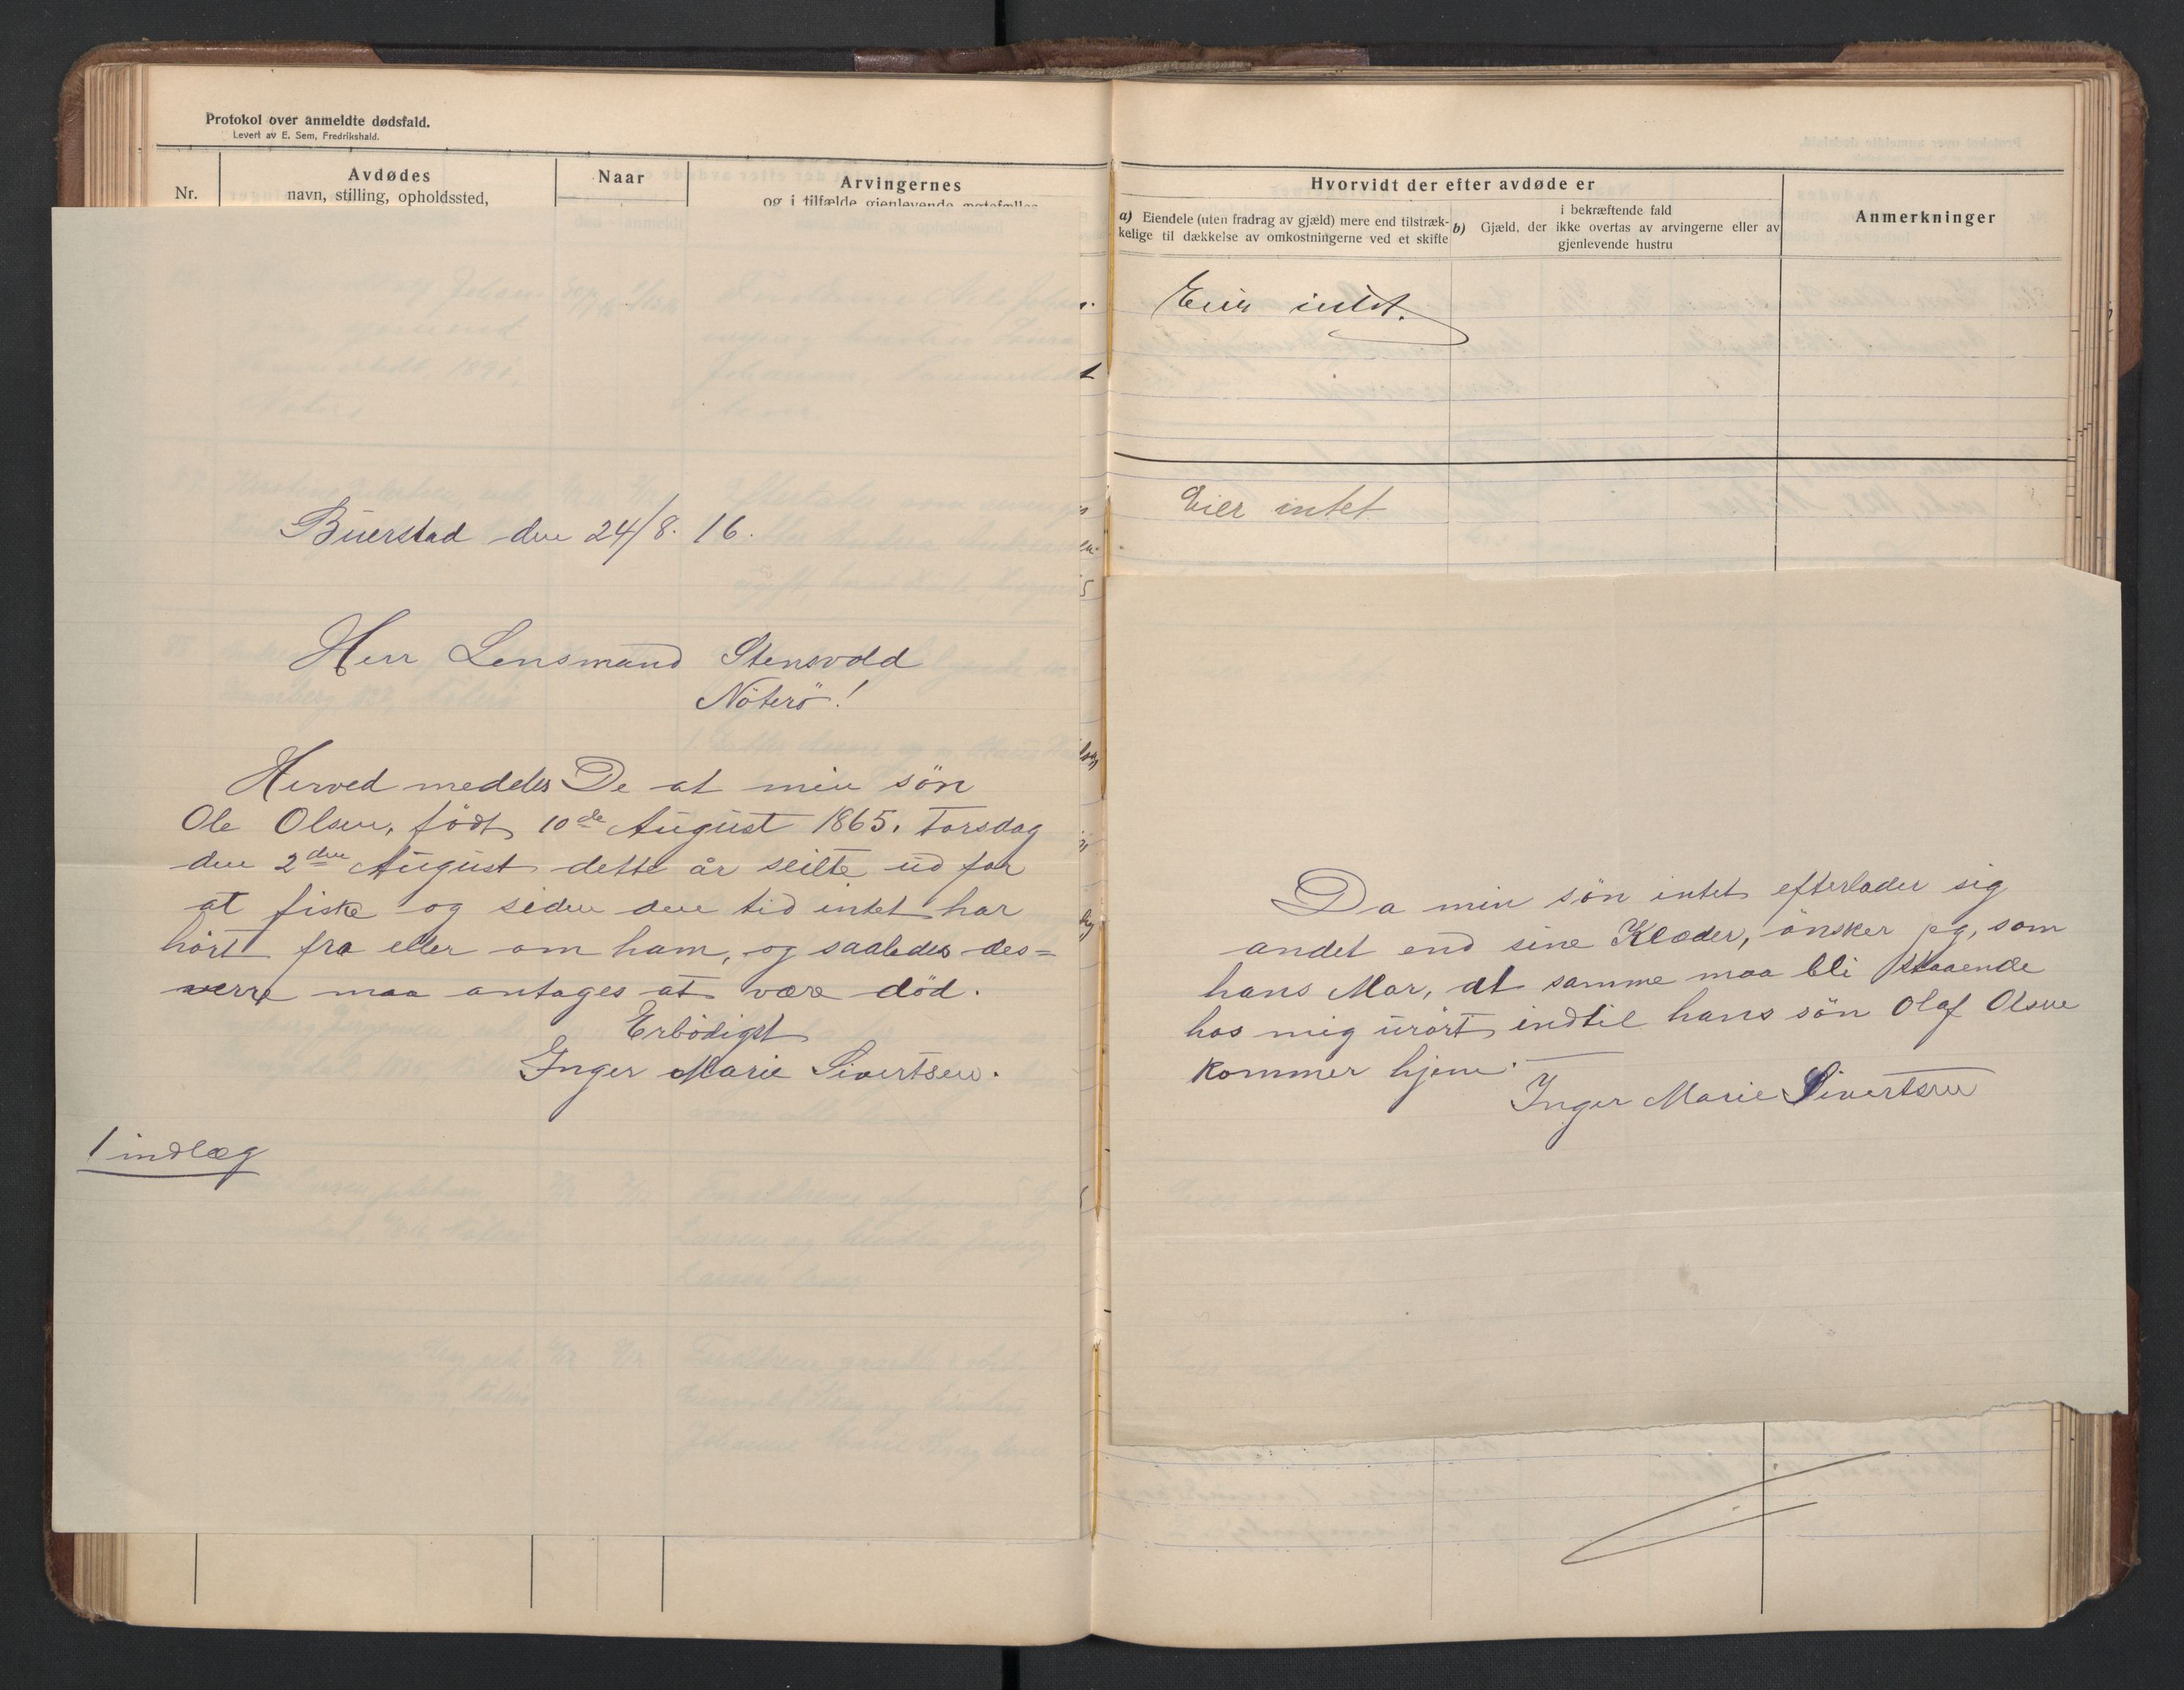 Protokol over anmeldte dødsfald.
Levert av E. Sem, Fredrikshald.
Nr.
Avdødes
navn, stilling, opholdssted,
Naar
Arvingernes
og i tilfælde gjenlevende ægtefælles
Buerstad den 24/8. 16.
Herr Lensmand Stensvold
Nöterö!
Herved meddeles De at min sön
Ole Olsen, födt 10de August 1865. Torsdag
den 2den August dette år seilte ud for
at fiske og siden den tid intet har
hört fra eller om ham, og saaledes des=
verre maa antages at være död.
Erbödigst
Inger Marie Sivertsen.
1 indlæg
Hvorvidt der efter avdøde er
a) Eiendele (uten fradrag av gjæld) mere end tilstræk-
kelige til dækkelse av omkostningerne ved et skifte
b) Gjæld, der
i bekræftende fald
ikke overtas av arvingerne eller av
gjenlevende hustru
Anmerkninger
Eier intet.
Eier intet
Da min sön intet efterlader sig
andet end sine Klæder, önsker jeg, som
hans Mor, at samme maa bli staaende
hos mig urört indtil hans sön Olaf Olsen
kommer hjem.
Inger Marie Sivertsen